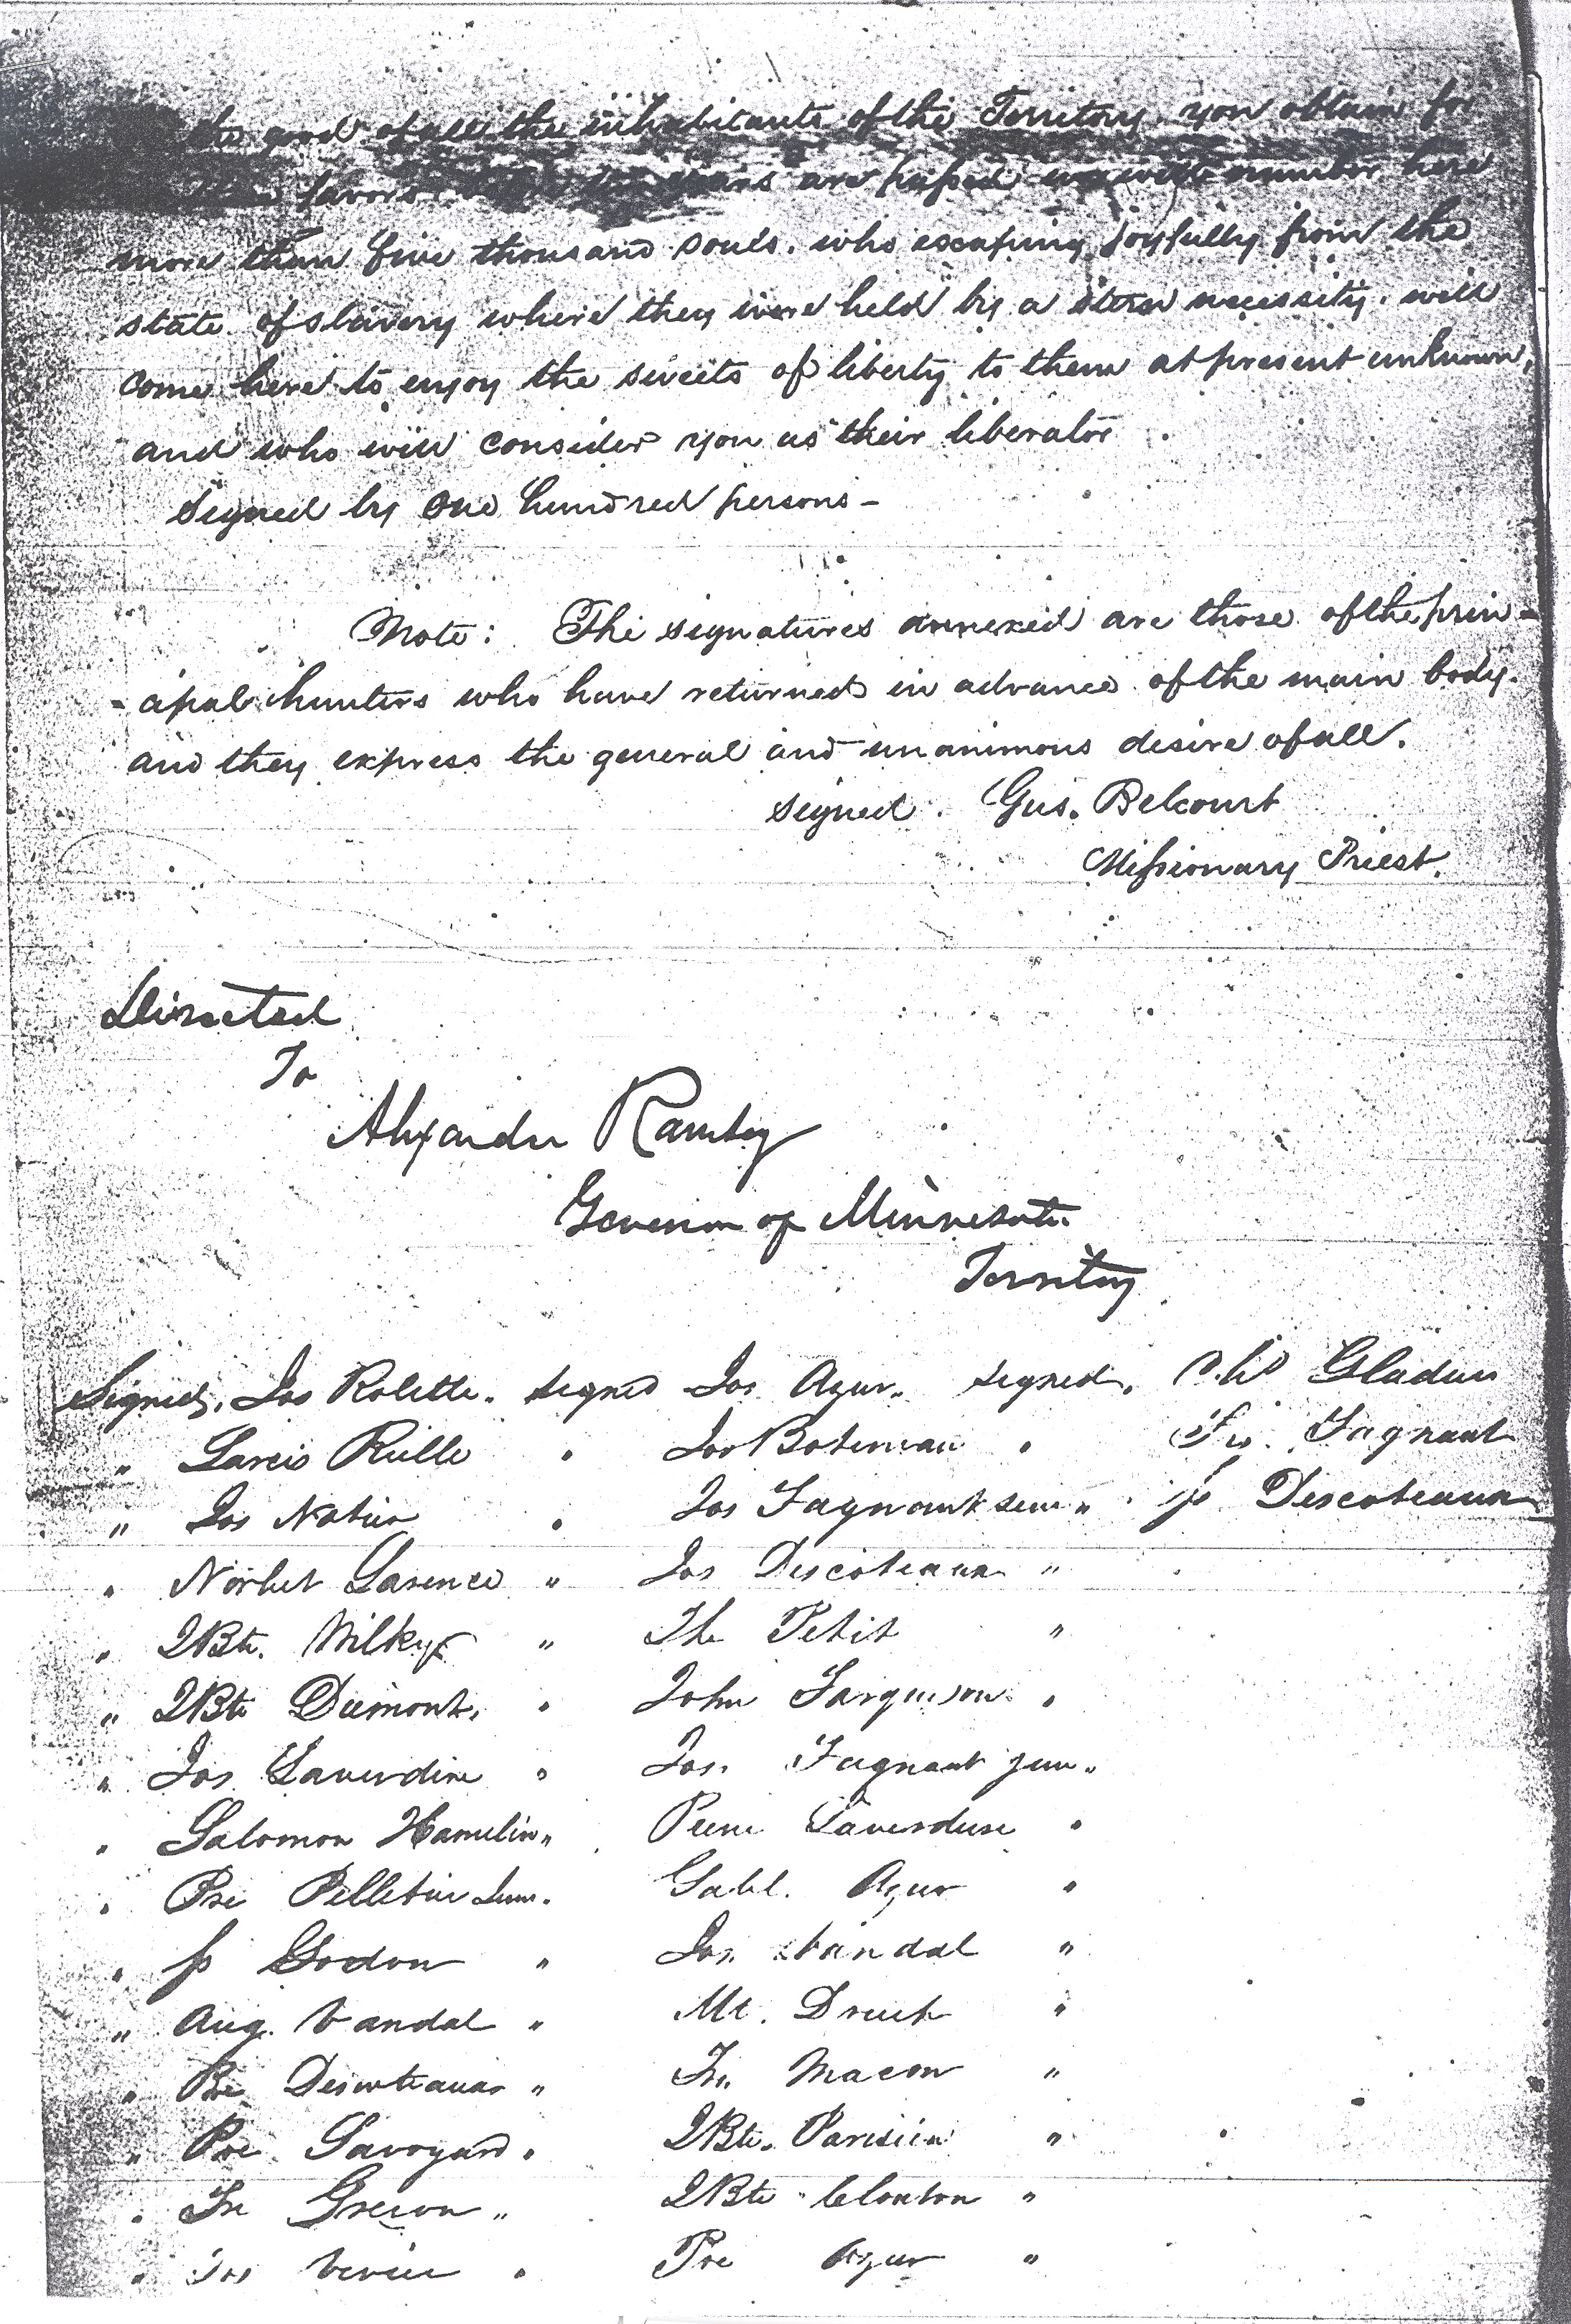 the good of all the inhabitants of the Territory. you obtain for
favors. years are passed we will number here
more than five thousand souls. who escaping joyfully from the
state of slavery where they were held by a stern necessity. will
come here to enjoy the sweets of liberty to them at present unknown,
and who will consider you as their liberator.
signed by one hundred persons -
Note: The signatures annexed are those of the prin -
- cipal hunters who have returned in advance of the main body.
and they express the general and unanimous desire of all.
signed. Gus. Belcourt
Missionary Priest.
Directed
To
Alexander Ramsey
Governor of Minnesota
Territory
Signed, Jos Rolette. signed Jos Azur. signed.
" Jos Botineau "
" Jos " Jos Fagnant sen " Descoteaux
" Norbet Larence " Jos Descoteaux "
" JBte. Wilky " The Petit "
" JBte Dumont, " John Farguson "
" Jos Laverdure " Jos. Fagnant jun. "
" Salomon Hamelin " Pierre Laverdure "
" Pre Pelletier " Gabl. Azur "
" Godon " Jos. Vandal "
" Aug. Vandal " "
" Pre Descoteaux " Fr. Macon "
" Pre Savoyard " JBte. Parisien "
" Fr " JBte "
" Jos " Pre Azur "